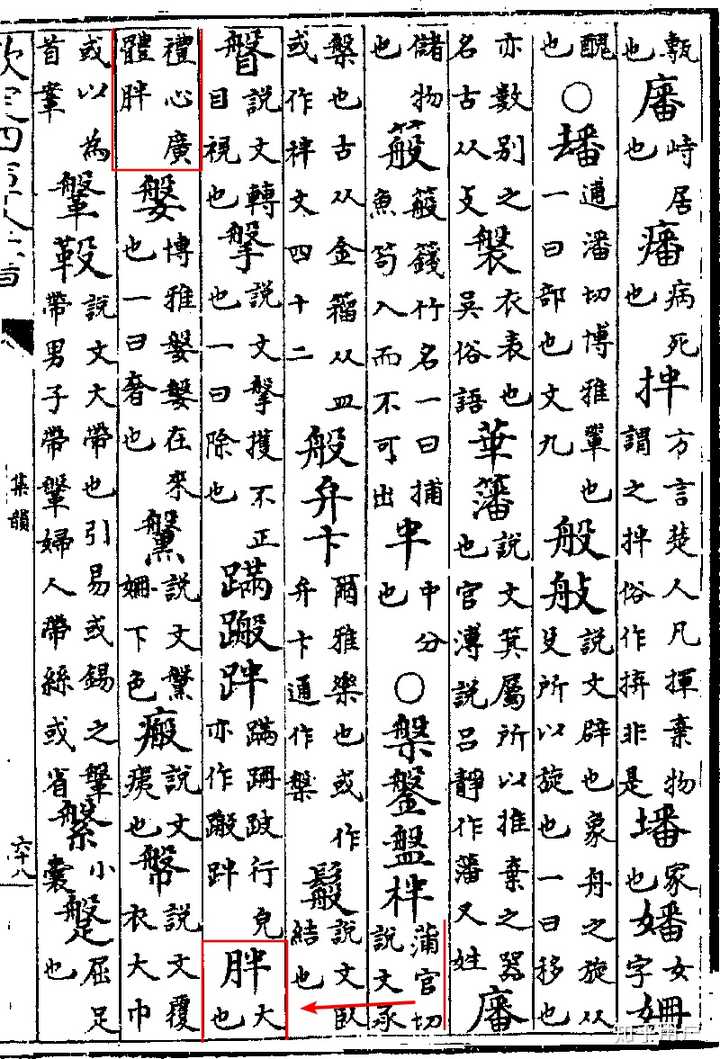 甎也㢖峙居也𤺏病死也拌方言楚人凡揮棄物謂之拌俗作拚非是墦冢也嬏姍女字
醜也○𤳖逋潘切博雅也一曰部也文九般𦨗說文辟也象舟之旋从殳所以旋也一曰移也
亦數別之名古从攴褩衣表也吳俗語華籓說文箕屬所以推棄之器也官溥說呂靜作藩又姓
儲物也䈲䈲竹名一曰捕魚笱入而不可出𠦒中分也○槃鎜盤柈蒲官切說文承
槃也古从金籀从皿或作柈文四十二般弁卞爾雅樂也或作弁卞通作槃鬆說文臥結也
瞥說文轉目視也搫說文搫擭不正也一曰除也蹣跘蹣跚跛行皃亦作跘胖大也
禮心廣體胖媻博雅媻媻往來也一曰奢也說文姍下色瘢說文痍也幋說文覆衣大巾
或以為首鞶鞶說文大帶也引易或錫之鞶帶男子帶鞶婦人帶絲或省縏小囊屈足也
欽定四庫全書
集韻
六十八
知乎用户